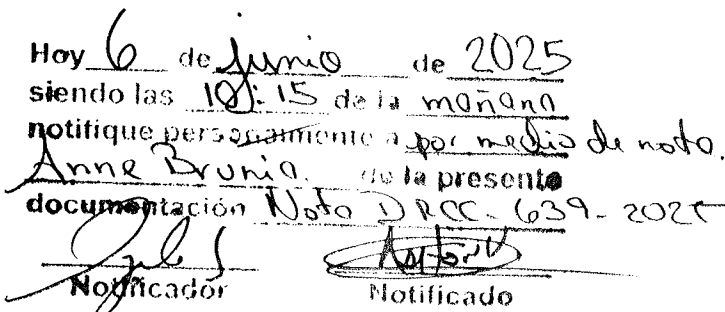 Hoy 6 de Junio de 2025
siendo las 10:15 de la mañana
notifique personalmente a por medio de nota.
Anne Brunio. de la presente
documentación Nota DRCC-639-2025
Notificador Notificado